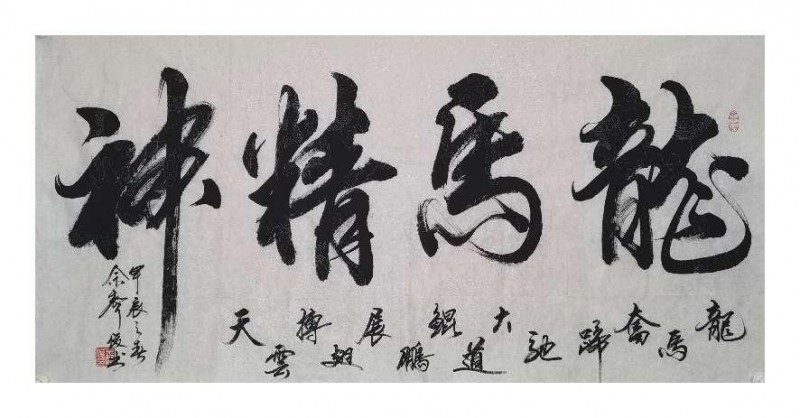 龍馬精神
龍馬奮蹄馳大道鯤鵬展翅搏雲天
甲辰之春